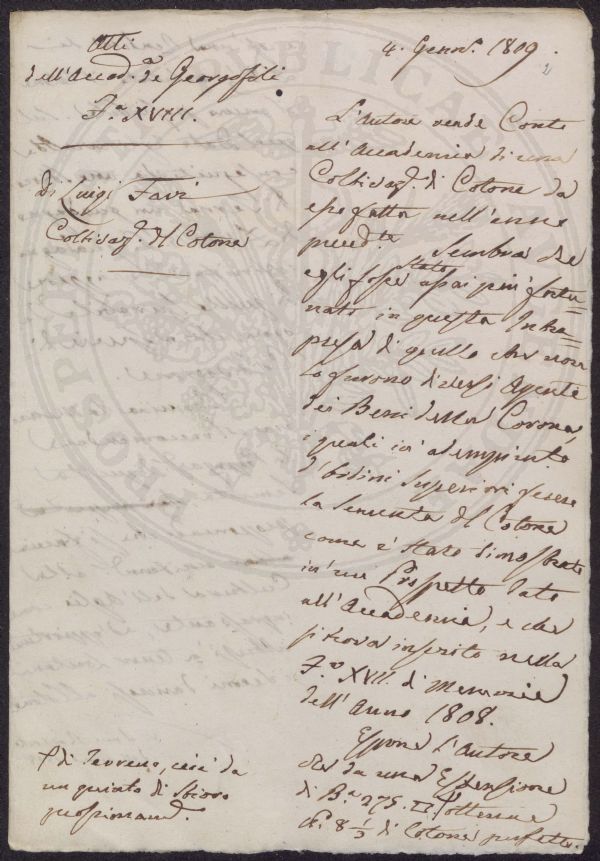 Atti
dell'Accad.ª de Georgofili
F.ª XVIII.
Di Luigi Favi
Coltivaz. del Cotone
4. Genn.º 1809.
2
L'Autore rende Conto
all'Accademia di una
Coltivaz. di Cotone da
esso fatta nell'anno
preced.te Sembra che
egli fosse stato assai più fortu-
nato in questa Intra-
presa di quello che non
lo furono diversi Agenti
dei Beni della Corona,
i quali in adempimento
d'ordini superiori fecero
la sementa del Cotone
come è stato dimostrato
in un Prospetto dato
all'Accademia, e che
si trova inserito nella
F.ª XVII. di Memorie
dell'Anno 1808.
Espone l'Autore
che da una Estensione
di B.ª 275. ottenne
8 1/2 di Cotone perfetto.
di Terreno, cioè da
un quinto di